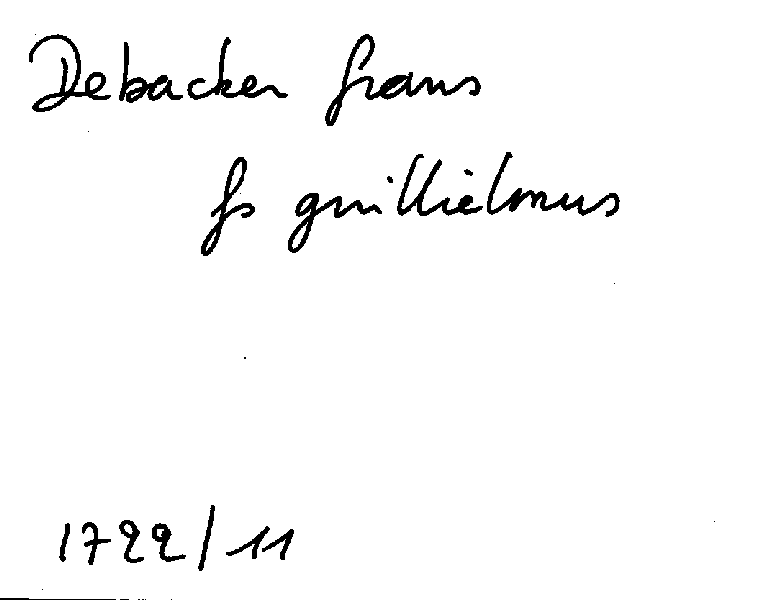 Debacker frans
fs guillielmus
1722/11